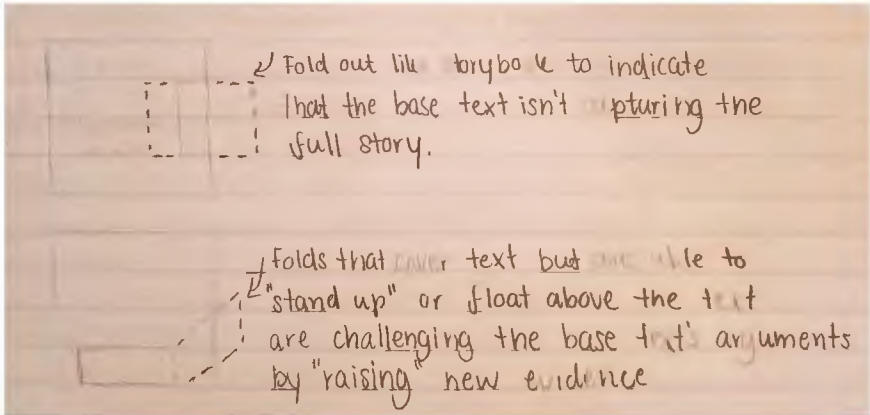 Fold out like storybook to indicate
that the base text isn't capturing the
full story.
Folds that cover text but are able to
"stand up" or float above the text
are challenging the base text's arguments
by "raising" new evidence